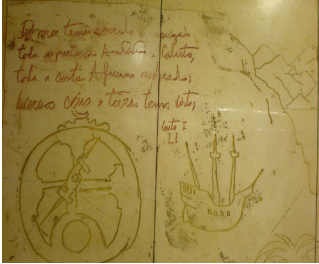 Do mar temos
toda a parte do Antártico e Calisto,
toda a costa Africana rodeado;
diversos céus e terras temos visto;
Canto I